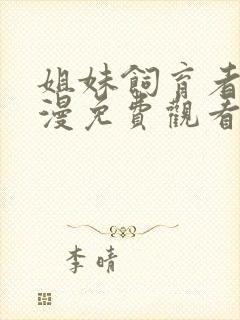 姐妹飼育者
漫免費觀看
李晴